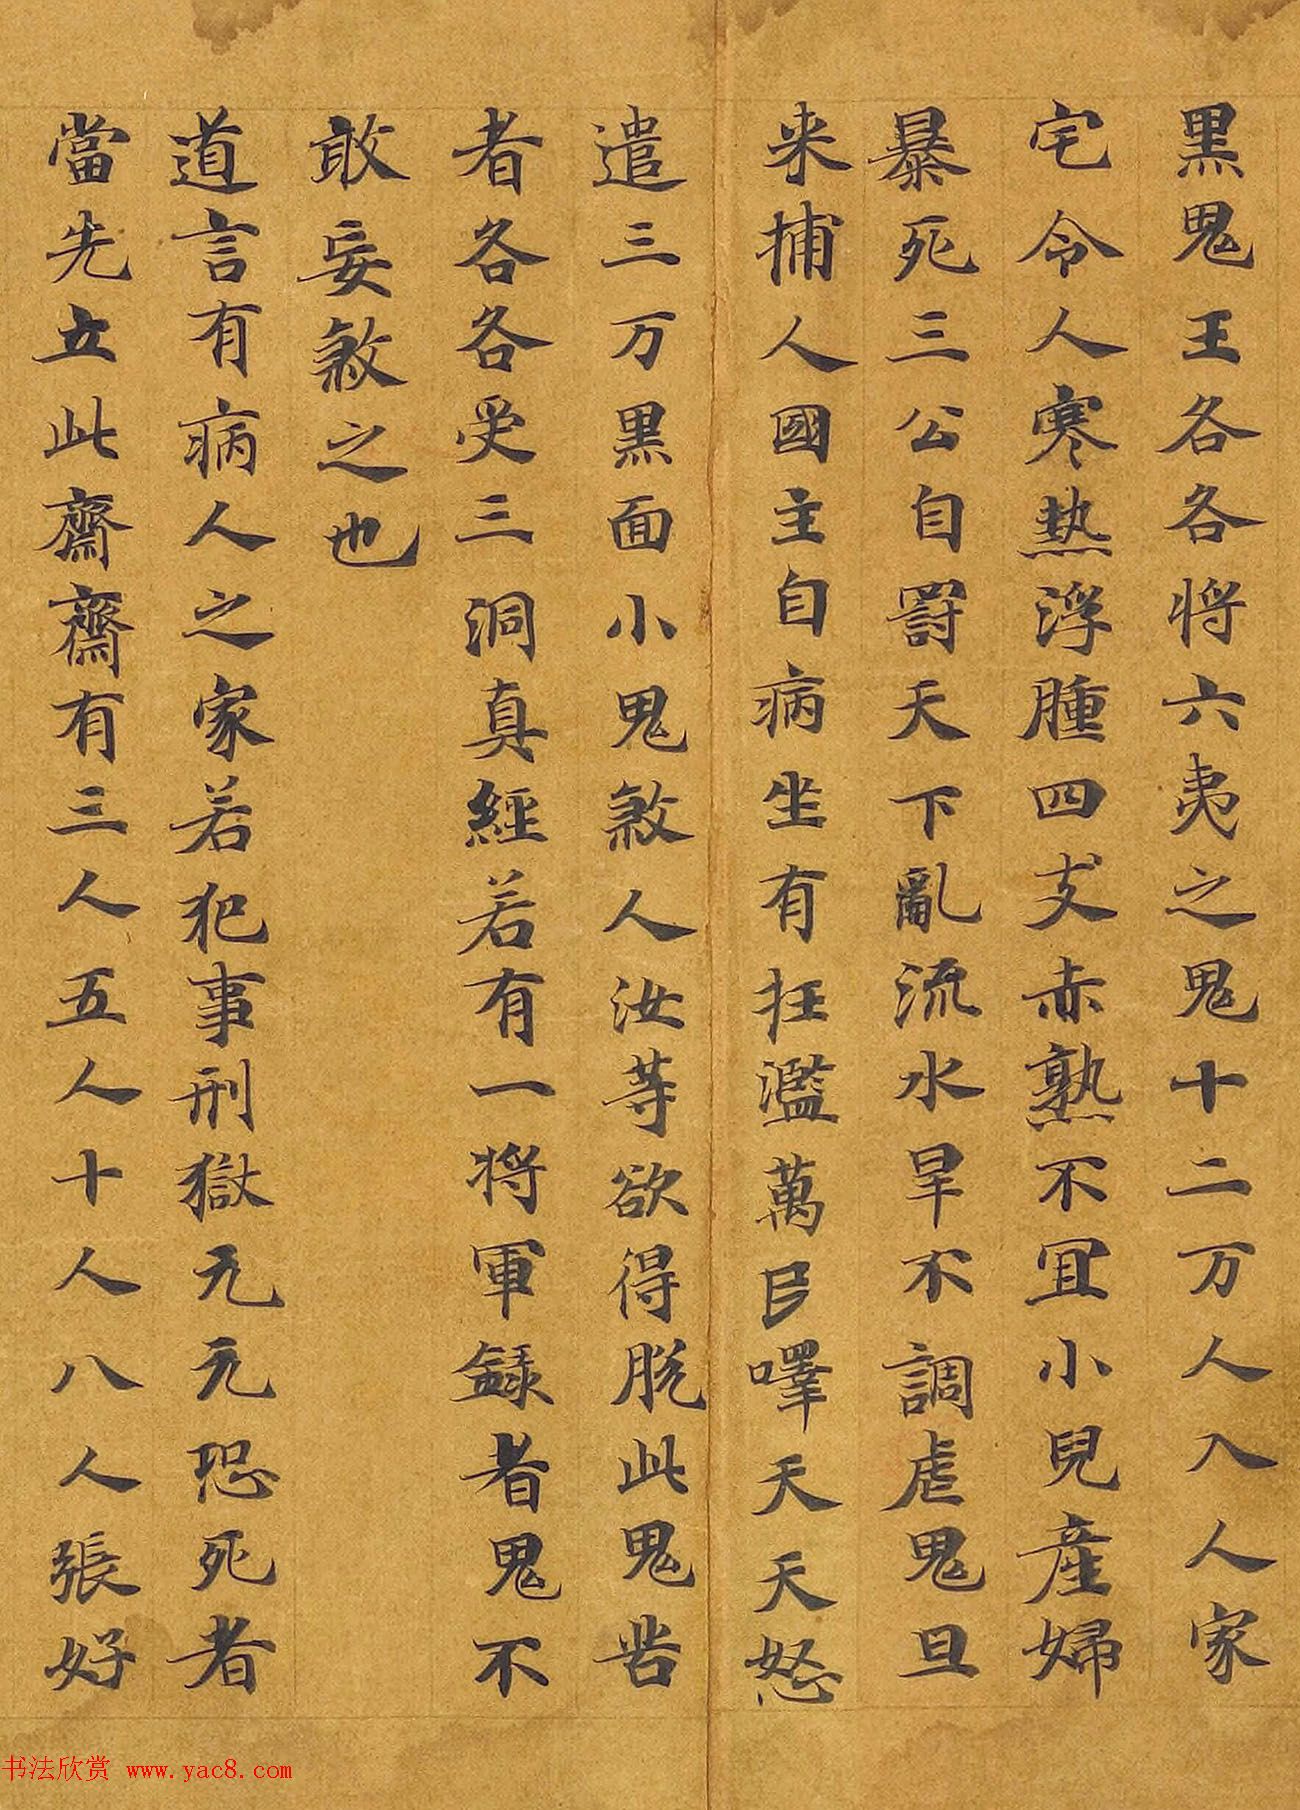 黒鬼王各各将六夷之鬼十二万人入人家
宅令人寒熱浮腫四支赤熟不冝小兒産婦
暴死三公自罸天下亂流水旱不調虐鬼旦
来捕人國主自病坐有抂濫萬民嘷天天怒
遣三万黒面小鬼煞人汝等欲得脱此鬼苦
者各各受三洞真經若有一将軍録者鬼不
敢妄煞之也
道言有病人之家若犯事刑獄元元恐死者
當先立此齋齋有三人五人十人八人張好
书法欣赏 www.yac8.com